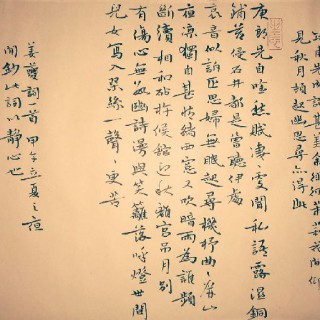 先成辭甚美余徘徊茉莉花間仰
見秋月頓起幽思尋亦得此
庾郎先自吟愁賦淒淒更聞私語露濕銅
鋪苔侵石井都是曾聽伊處
哀音似訴正思婦無眠起尋機杼曲〻屏山
夜涼獨自甚情緒西窗又吹暗雨為誰頻
斷續相和砧杵候館迎秋離宮吊月別
有傷心無數豳詩漫與笑籬落呼燈世間
兒女寫入琴絲一聲〻更苦
姜夔詞一首甲午立夏之夜
閒鈔此詞以靜心也